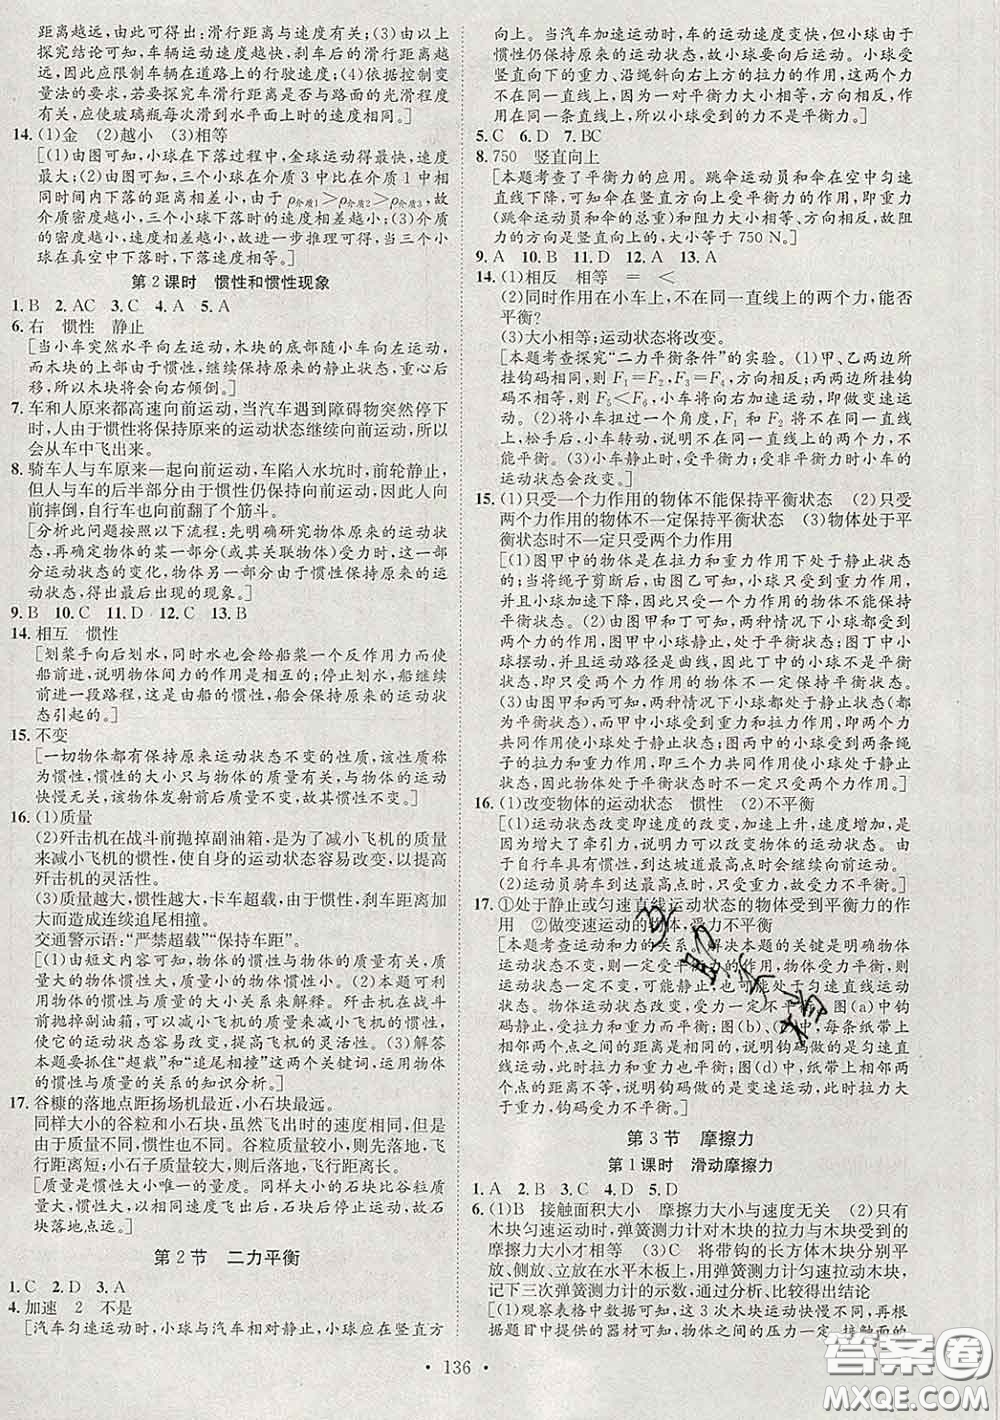 距离越远,由此可得出:滑行距离与速度有关;(3)由以上
探究结论可知,车辆运动速度越快,刹车后的滑行距离越
远,因此应限制车辆在道路上的行驶速度;(4)依据控制变
量法的要求,若要探究车滑行距离是否与路面的光滑程度
有关,应使玻璃瓶每次滑到水平面上时的速度相同。]
14. (1)金 (2)越小 (3)相等
[(1)由图可知,小球在下落过程中,金球运动得最快,速度
最大;(2)由图可知,三个小球在介质3中比在介质1中相
同时间内下落的距离相差小,由于ρ介质1>ρ介质2>ρ介质3,故
介质密度越小,三个小球下落时的速度相差越小;(3)介质
的密度越小,速度相差越小,進一步推理可得,当三个小球
在真空中下落时,下落速度相等。]
第2课时 惯性和惯性现象
1. B 2. AC 3. C 4. A 5. A
6. 右 惯性 静止
[当小车突然水平向左运动,木块的底部随小车向左运动,
而木块的上部由于惯性,继续保持原来的静止状态,重心后
移,所以木块将会向右倾倒。]
7. 车和人原来都高速向前运动,当汽车遇到障碍物突然停下
时,人由于惯性将保持原来的运动状态继续向前运动,所以
会从车中飞出来。
8. 骑车人与车原来一起向前运动,车陷入水坑时,前轮静止,
但人与车的后半部分由于惯性仍保持向前运动,因此人向
前摔倒,自行车也向前翻了个筋斗。
[分析此问题按照以下流程:先明确研究物体原来的运动状
态,再确定物体的某一部分(或其关联物体)受力时,这一部
分运动状态的变化,物体另一部分由于惯性保持原来的运动状
态,得出最后出现的现象。]
9. B 10. C 11. D 12. C 13. B
14. 相互 惯性
[划桨手向后划水,同时水也会给船桨一个反作用力而使
船前进,说明物体间力的作用是相互的;停止划水,船继续
前进一段路程,这是由船的惯性,船会保持原来的运动状
态引起的。]
15. 不变
[一切物体都有保持原来运动状态不变的性质,该性质称
为惯性,惯性的大小只与物体的质量有关,与物体的运动
快慢无关,该物体发射后由于质量不变,故其惯性不变。]
16. (1)质量
(2)歼击机在战斗前抛掉副油箱,是为了减小飞机的质量
来减小飞机的惯性,使自身的运动状态容易改变,以提高
歼击机的灵活性。
(3)质量越大,惯性越大,卡车超载,由于惯性,刹车距离变
大而造成连续追尾相撞。
交通警示语:“严禁超载”“保持车距”。
[(1)由短文内容可知,惯性不同的原因是物体的质量不同,质
量大的物体惯性大,质量小的物体惯性小。(2)本题可利
用物体的惯性与质量的关系来解释。歼击机在战斗前
抛掉副油箱,可以减小飞机的质量,减小飞机的惯性,
使它的运动状态容易改变,提高飞机的灵活性。(3)解答
本题要抓住“超载”和“追尾相撞”这两个关键词,运用物体的
惯性与质量的关系的知识分析。]
17. 谷糠的落地点距扬场机最近,小石块最远。
同样大小的谷粒和小石块,虽然飞出时的速度相同,但是
由于质量不同,惯性也不同。谷粒质量较小,则先落地,飞
行距离短;小石子质量较大,惯性较大,飞行距离较大。
[质量是惯性大小唯一的量度。同样大小的石块比谷粒质
量大,惯性大,以同样的速度飞出后,石块后停下来,故石
块落地点远。]
第2节 二力平衡
1. C 2. D 3. A
4. 加速 2 不是
[汽车匀速运动时,小球与汽车相对静止,小球应在竖直方
向上。当汽车加速运动时,车的速度变快,但小球由于
惯性仍保持原来的运动状态,故小要向向后运动。小球受
竖直向下的重力、沿绳斜向右上方的拉力的作用,这两个力
不在同一直线上,因为一对平衡力大小相等,方向相反,作
用在同一直线上,所以小球受到的力不是平衡力。]
5. C 6. D 7. BC
8. 750 竖直向上
[本题考查了平衡力的应用。跳伞运动员和伞在空中匀速
直线下降,可知运动员和伞在竖直方向受力平衡,即重力
(跳伞运动员与伞的总重)和阻力大小相等、方向相反,故阻
力的方向是竖直向上,大小等于750 N。]
9. A 10. B 11. D 12. A 13. D
14. (1)相反 相等 = <
(2)同时作用在小车上,不在同一直线上的两个力,能否
平衡?
(3)大小相等;运动状态将改变。
[本题考查探究“二力平衡条件”的实验。(1)甲、乙两边所
挂钩码相同,则F₁=F₂、F₃=F₄;丙两边所挂的钩码
不相同,则F₅<F₆,小车将向右加速运动,即做变速运
动。(2)将小车扭过一个角度,F₁和F₂将不在同一直线
上,松手后,小车转动,说明不在同一直线上的两个力不能
平衡。(3)小车静止时,受平衡力;受非平衡力时小车的
运动状态会改变。]
15. (1)只受一个力作用的物体不能保持平衡状态 (2)只受
两个力作用的物体不一定保持平衡状态 (3)物体处于平
衡状态时不一定只受两个力作用
[(1)图甲中的物体在拉力和重力作用下处于静止状态
的;当将绳子剪断后,由图乙可知,小球只受重力的作用,
并且小球加速下降,因此只受一个力作用的物体不能保持
平衡状态。(2)由图甲和丁可知,两种情况下小球都是受
到拉力和重力的作用。图甲中小球静止,处于平衡状态;图丁中小
球摆动,并且运动路径是曲线,因此丁中的小球处于非平衡
状态,即只受两个力作用的物体不一定保持平衡状态。
(3)由图甲和丙可知,两种情况下小球都处于静止状态(都
为平衡状态),而图甲中小球受拉力和重力作用,即两个力
共同作用使小球处于静止状态;图丙中的小球受到两条绳
子的拉力和重力作用,即三个力共同作用使小球处于静止
状态,因此物体处于平衡状态时,不一定只受两个力作用。]
16. (1)改变物体的运动状态 惯性 (2)不平衡
[(1)运动状态改变即速度的改变,加速上升,速度变大,因
为增大了牵引力,说明力可以改变物体的运动状态。由
于自行车具有惯性,到达坡道最高点时会继续向前运动。
(2)运动员骑车到达最高点时,只受重力,故受力不平衡。]
17. ①处于静止或匀速直线运动状态的物体受到平衡力的作
用 ②做变速运动的物体,受力不平衡
[本题考查运动和力的关系。解决本题的关键是明确物体
运动状态不变,则一定受平衡力的作用。受平衡力作用,
运动状态一定不变,可能静止,也可能处于匀速直线运动
状态。物体运动状态改变,受力一定不平衡。图(a)中钩
码静止,受拉力和重力而平衡;图(b)、(c)中,每条纸带上
相邻两个点之间的距离相等,说明钩码做的是匀速直线
运动,此时钩码受力也平衡;图(d)中,纸带上相邻两个点
的距离不等,说明钩码做的是变速运动,此时拉力大
于重力,钩码受力不平衡。]
第3节 摩擦力
第1课时 滑动摩擦力
1. A 2. B 3. D 4. D 5. D
6. (1)B 接触面积大小 摩擦力大小与速度无关 (2)只有
木块匀速运动时,弹簧测力计对木块的拉力与木块受到的
摩擦力大小才相等 (3)C 将带钩的长方体木块分别平
放、侧放、立放在水平木板上,用弹簧测力计匀速拉动木块,
记下三次弹簧测力计的示数,分析、比较得出结论
[(1)观察表格中数据可知,这3次木块运动快慢不同,再根
据题目中提供的器材可知,物体之间的压力一定,接触面的
• 136 •
答案圈
MXQE.COM